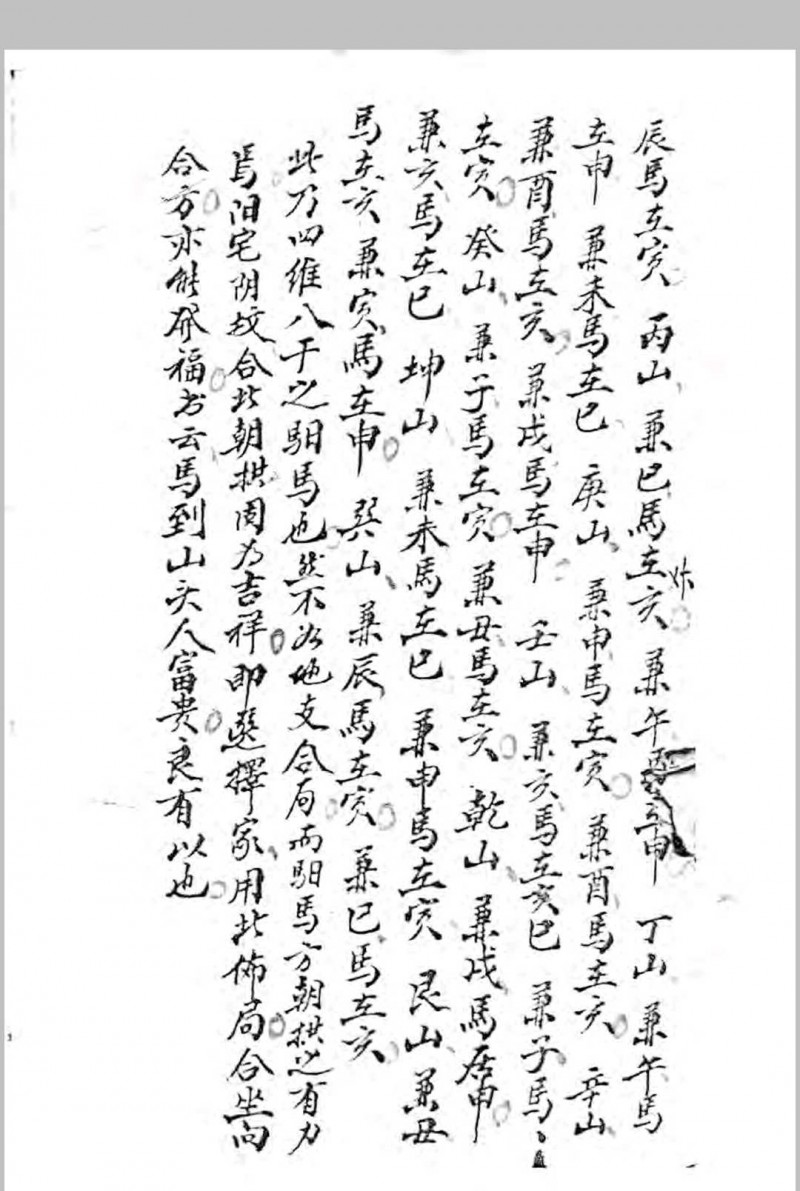 辰馬在寅 丙山 兼巳馬在亥 兼午馬在申 丁山 兼午馬
在申 兼未馬在巳 庚山 兼申馬在寅 兼酉馬在亥 辛山
兼酉馬在亥 兼戌馬在申 壬山 兼亥馬在巳 兼子馬
在寅 癸山 兼子馬在寅 兼丑馬在亥 乾山 兼戌馬居申
兼亥馬在巳 坤山 兼未馬在巳 兼申馬在寅 艮山 兼丑
馬在亥 兼寅馬在申 巽山 兼辰馬在寅 兼巳馬在亥
此乃四维八干之馹馬也然不如地支合局而馹馬方朝拱之有力
焉阳宅阴坟合此朝拱固为吉祥即選擇家用此佈局合坐向
合方亦能發福书云馬到山头人富贵良有以也